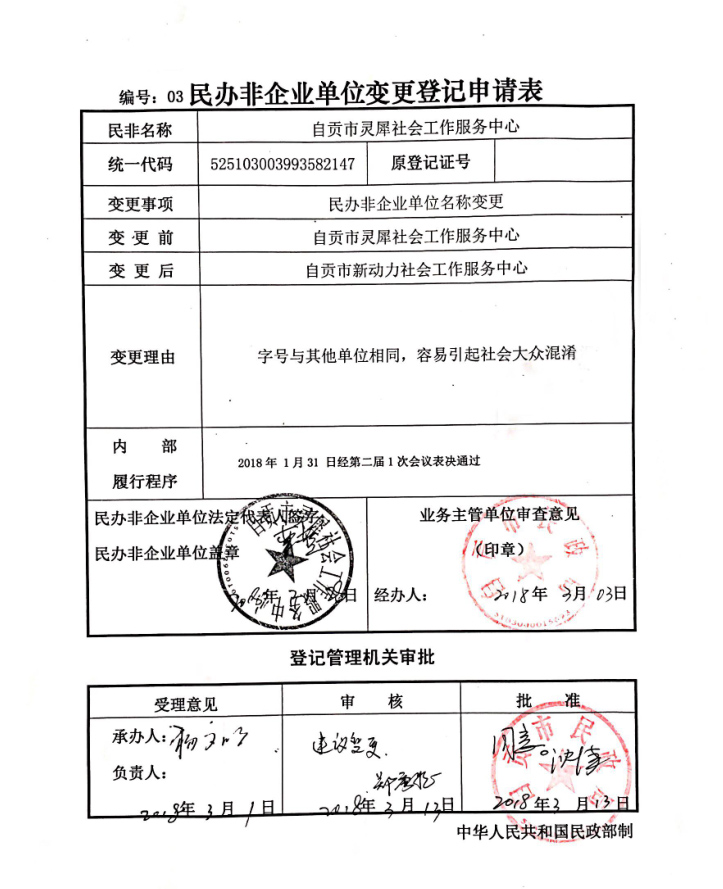 编号：03 民办非企业单位变更登记申请表
民非名称 自贡市灵犀社会工作服务中心
统一代码 525103003993582147 原登记证号
变更事项 民办非企业单位名称变更
变更前 自贡市灵犀社会工作服务中心
变更后 自贡市新动力社会工作服务中心
变更理由 字号与其他单位相同，容易引起社会大众混淆
内部
履行程序
2018年1月31日经第二届1次会议表决通过
民办非企业单位法定代表人签名
民办非企业单位盖章
业务主管单位审查意见
（印章）
经办人： 2018年3月03日
登记管理机关审批
受理意见 审核 批准
承办人：
建议变更.
负责人：
2018年3月1日 2018年3月13日 2018年3月13日
中华人民共和国民政部制